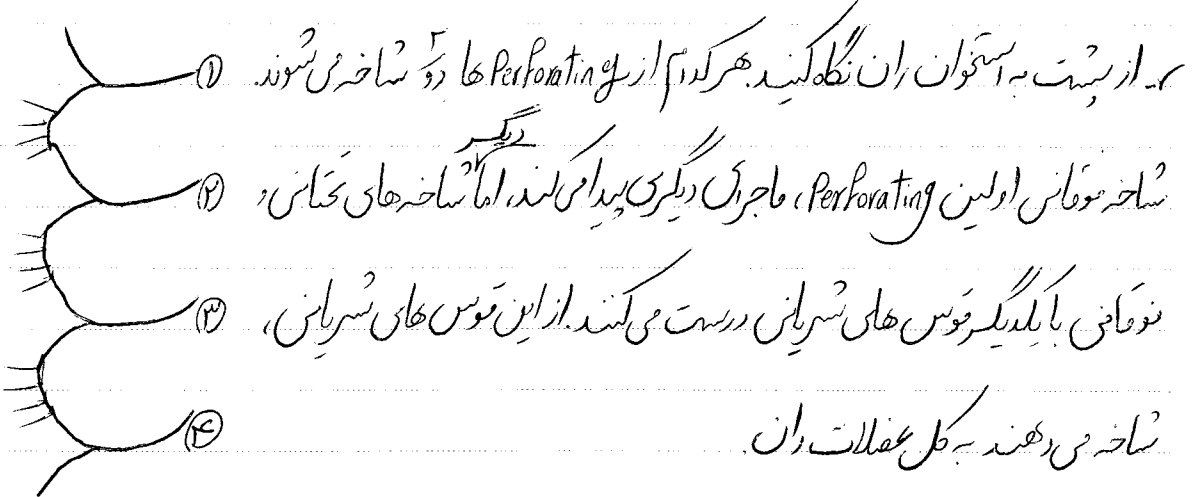 از پشت به استخوان ران نگاه کنید. هر کدام از Perforating ها دو تا شاخه می شوند. ①
شاخه فوقانی اولین Perforating، ماجرای دیگری پیدا می کند، اما شاخه های دیگر تحتانی و ②
فوقانی با یکدیگر قوس های شریانی درست می کنند. از این قوس های شریانی، ③
شاخه می دهند به کل عضلات ران. ④